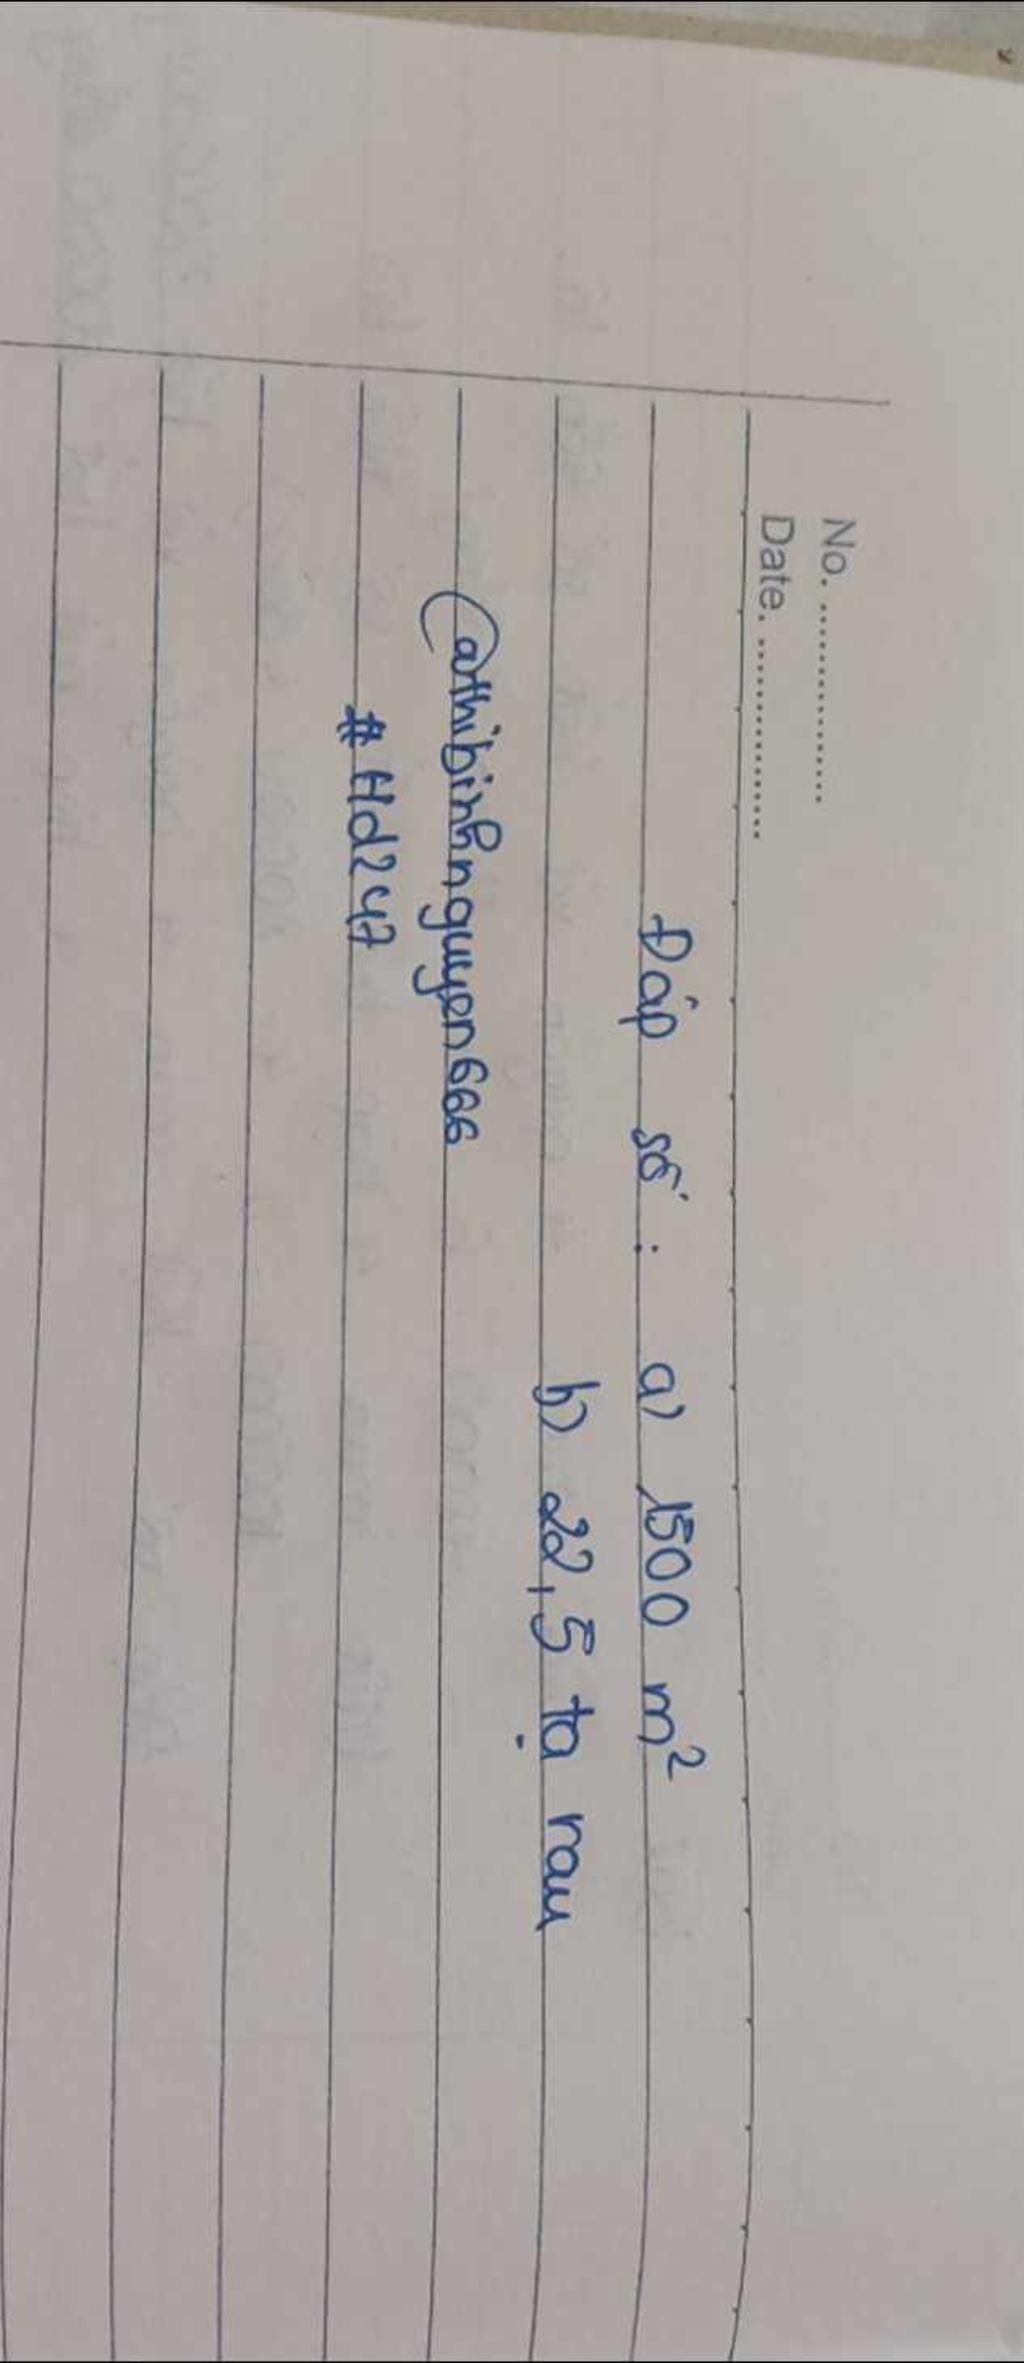 No. ................
Date. ................
Đáp số : a) 1500 m²
b) 22,5 tạ rau
@thibinhnguyen666
#Hd247